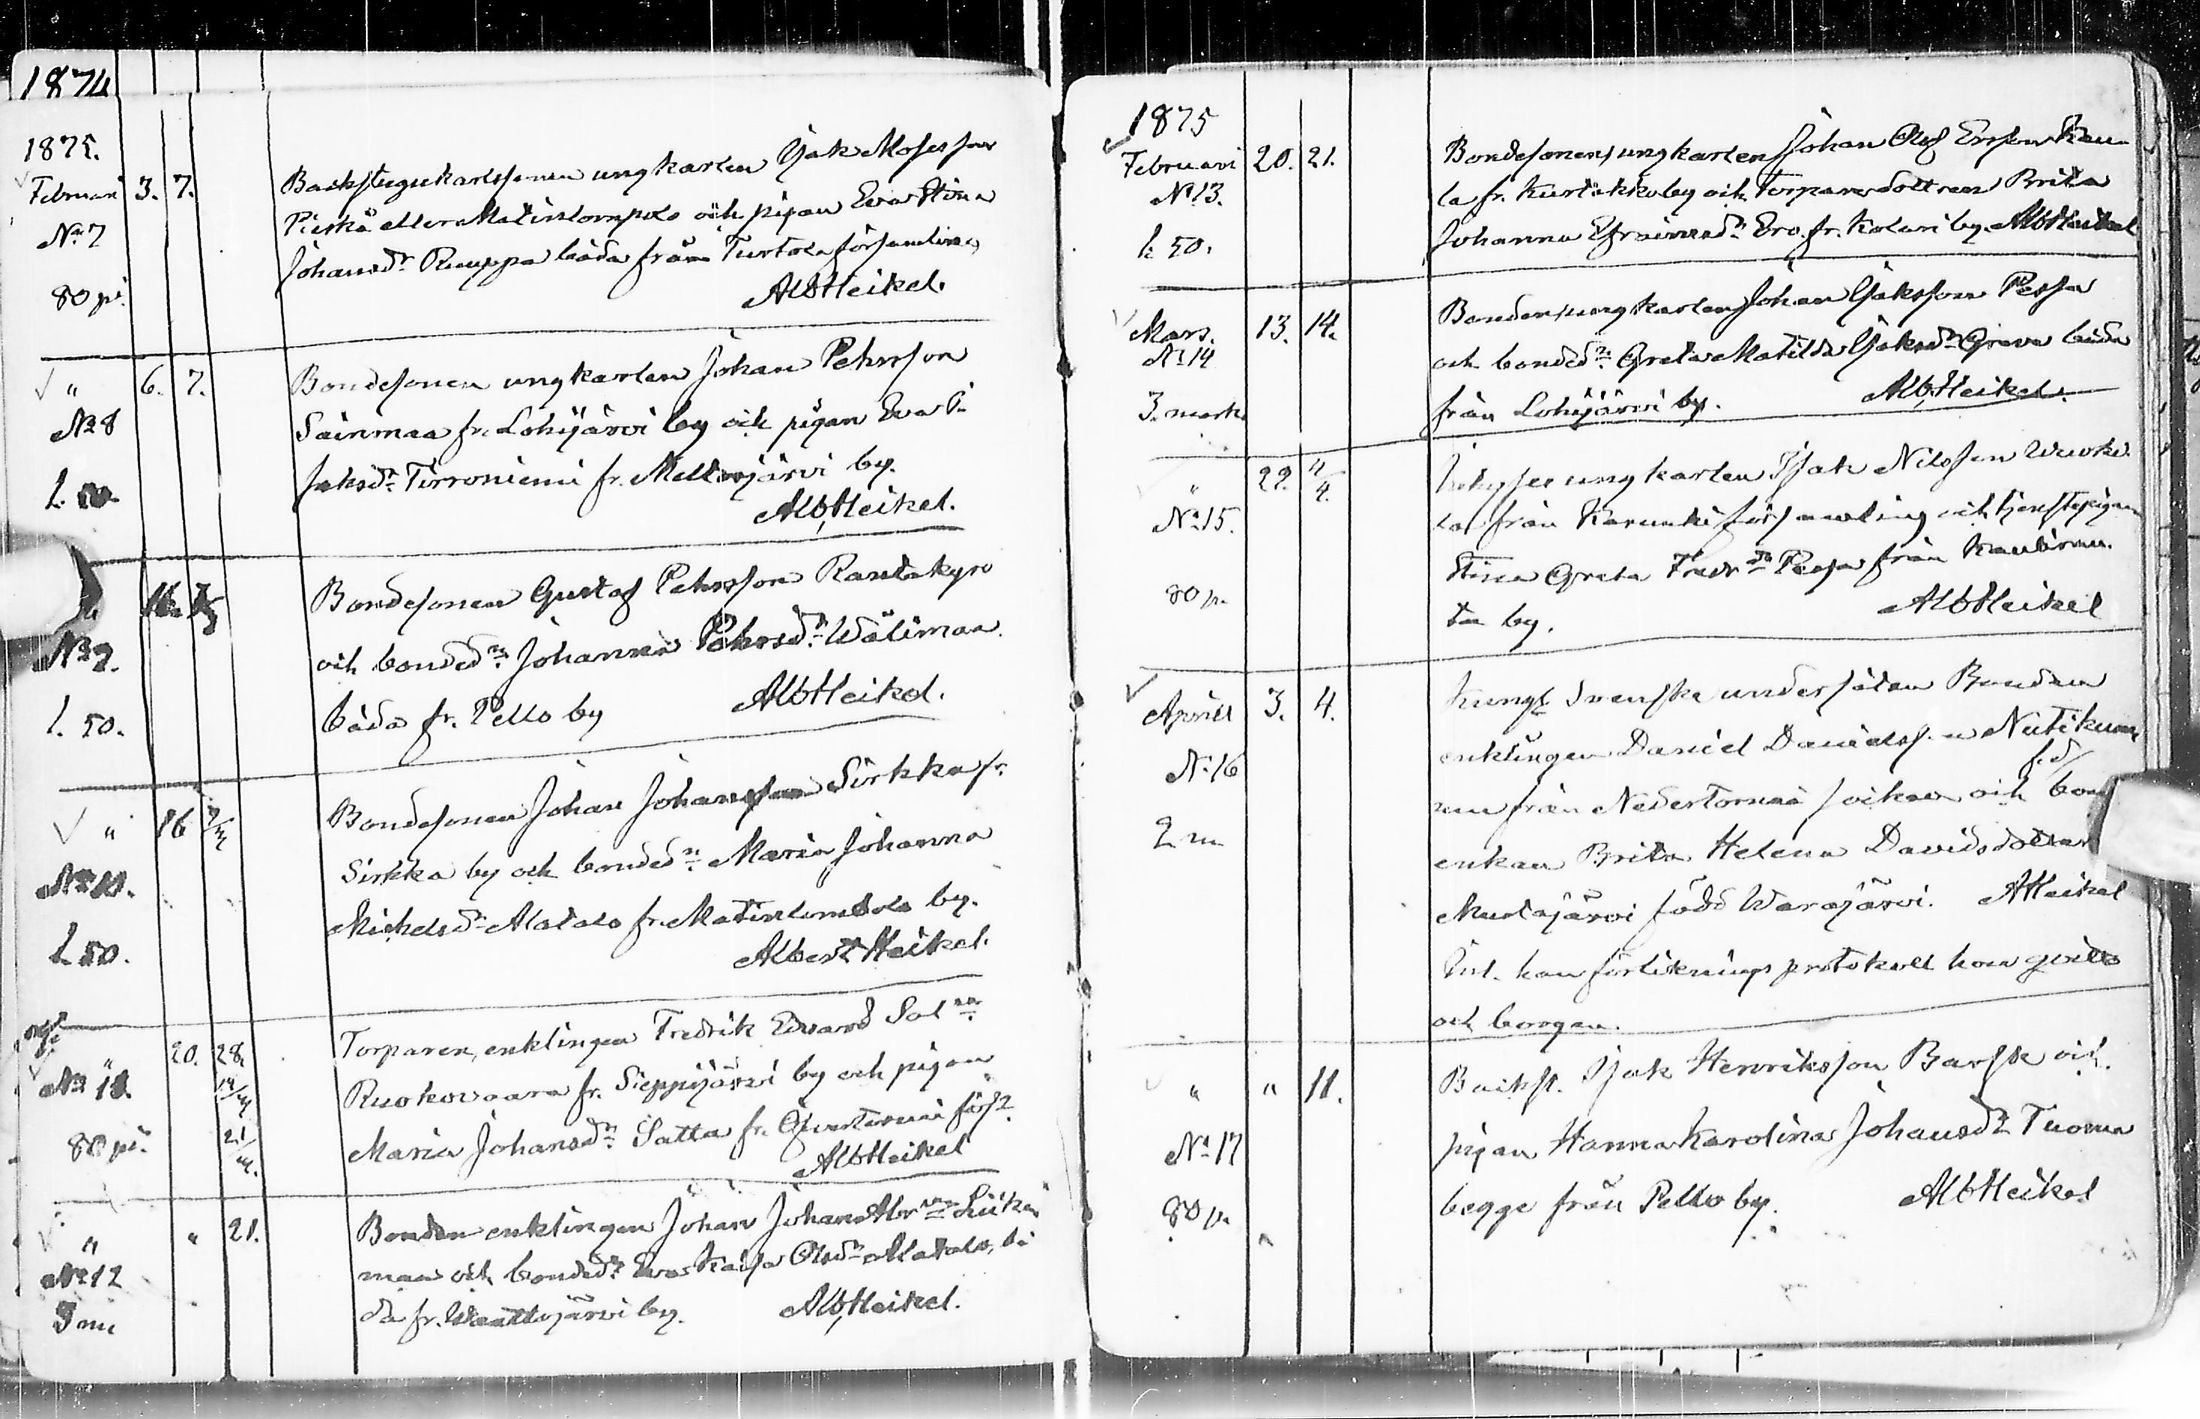 1874
1875.
Februari 3. 7. Backstugukarlssonen ungkarlen Isak Mosesson
No 7 Pieskä eller Matinlompolo och pigan Eva Stina
Johansdr Ruuppa båda från Turtola församling
80 pi. Alb Heikel.
" 6. 7. Bondesonen ungkarlen Johan Pehrsson
No 8 Säinmaa fr. Lohijärvi by och pigan Eva
1. 50. Isaksdr Tirroniemi fr. Meltosjärvi by.
Alb, Heikel.
" 16. Bondesonen Gustaf Pehrsson Rantakyro
No 9. och bondedr Johanna Pehrsdr Wälimaa
1. 50. båda fr. Pello by Alb Heikel.
" 16 Bondesonen Johan Johansson Sirkka fr.
No 10. Sirkka by och bondedr Maria Johanna
Michelsdr Alatalo fr. Matinlombolo by.
1. 50. Albert Heikel.
" 20. 28. Torparen, enklingen Fredrik Edvard Sal
No 11. 14/ Ruokovaara fr. Sieppijärvi by och pigan
80 pi. 21/ Maria Johansdr Satta fr. Öfvertorneå förs.
Alb Heikel
" " 21. Bonden enklingen Johan Johan Abr Liika
No 12 maa och bondedr Eva Kaisa Olsdr Alatalo, bå
3 m da fr. Waattojärvi by. Alb, Heikel.
1875
Februari 20. 21. Bondesonen ungkarlen Johan Olof Ersson Kau
No 13. la fr. Kurtakko by och Torpardottren Brita
1. 50. Johanna Efraimsdr Ero fr. Kolari by. Alb Heikel
Mars. 13. 14. Bonden ungkarlen Johan Isaksson Pessa
No 14 och bondedr Greta Matilda Isaksdr Grava båda
3. mark från Lohijärvi by. Alb, Heikel.
" 22. 4/4. ungkarlen Isak Nilsson
No 15. la från Karunki församling och tjenstepigan
Stina Greta Fredrdr Pessa från
80 p. ta by. Alb Heikel
April 3. 4. Kungl Svenske undersåten Bonden
enklingen Daniel Danielsson
No 16 från Nedertorneå socken och
f.d/
2 m enkan Brita Helena Davidsdotter
Mustajärvi född Warajärvi. A Heikel
Inl. han förliknings protokoll hon qvitto
och borgen.
" " 11. Backst. Isak Henriksson Barsk och
No 17 pigan Hanna Karolina Johansdr Tuoma
80 p. begge från Pello by. Alb Heikel